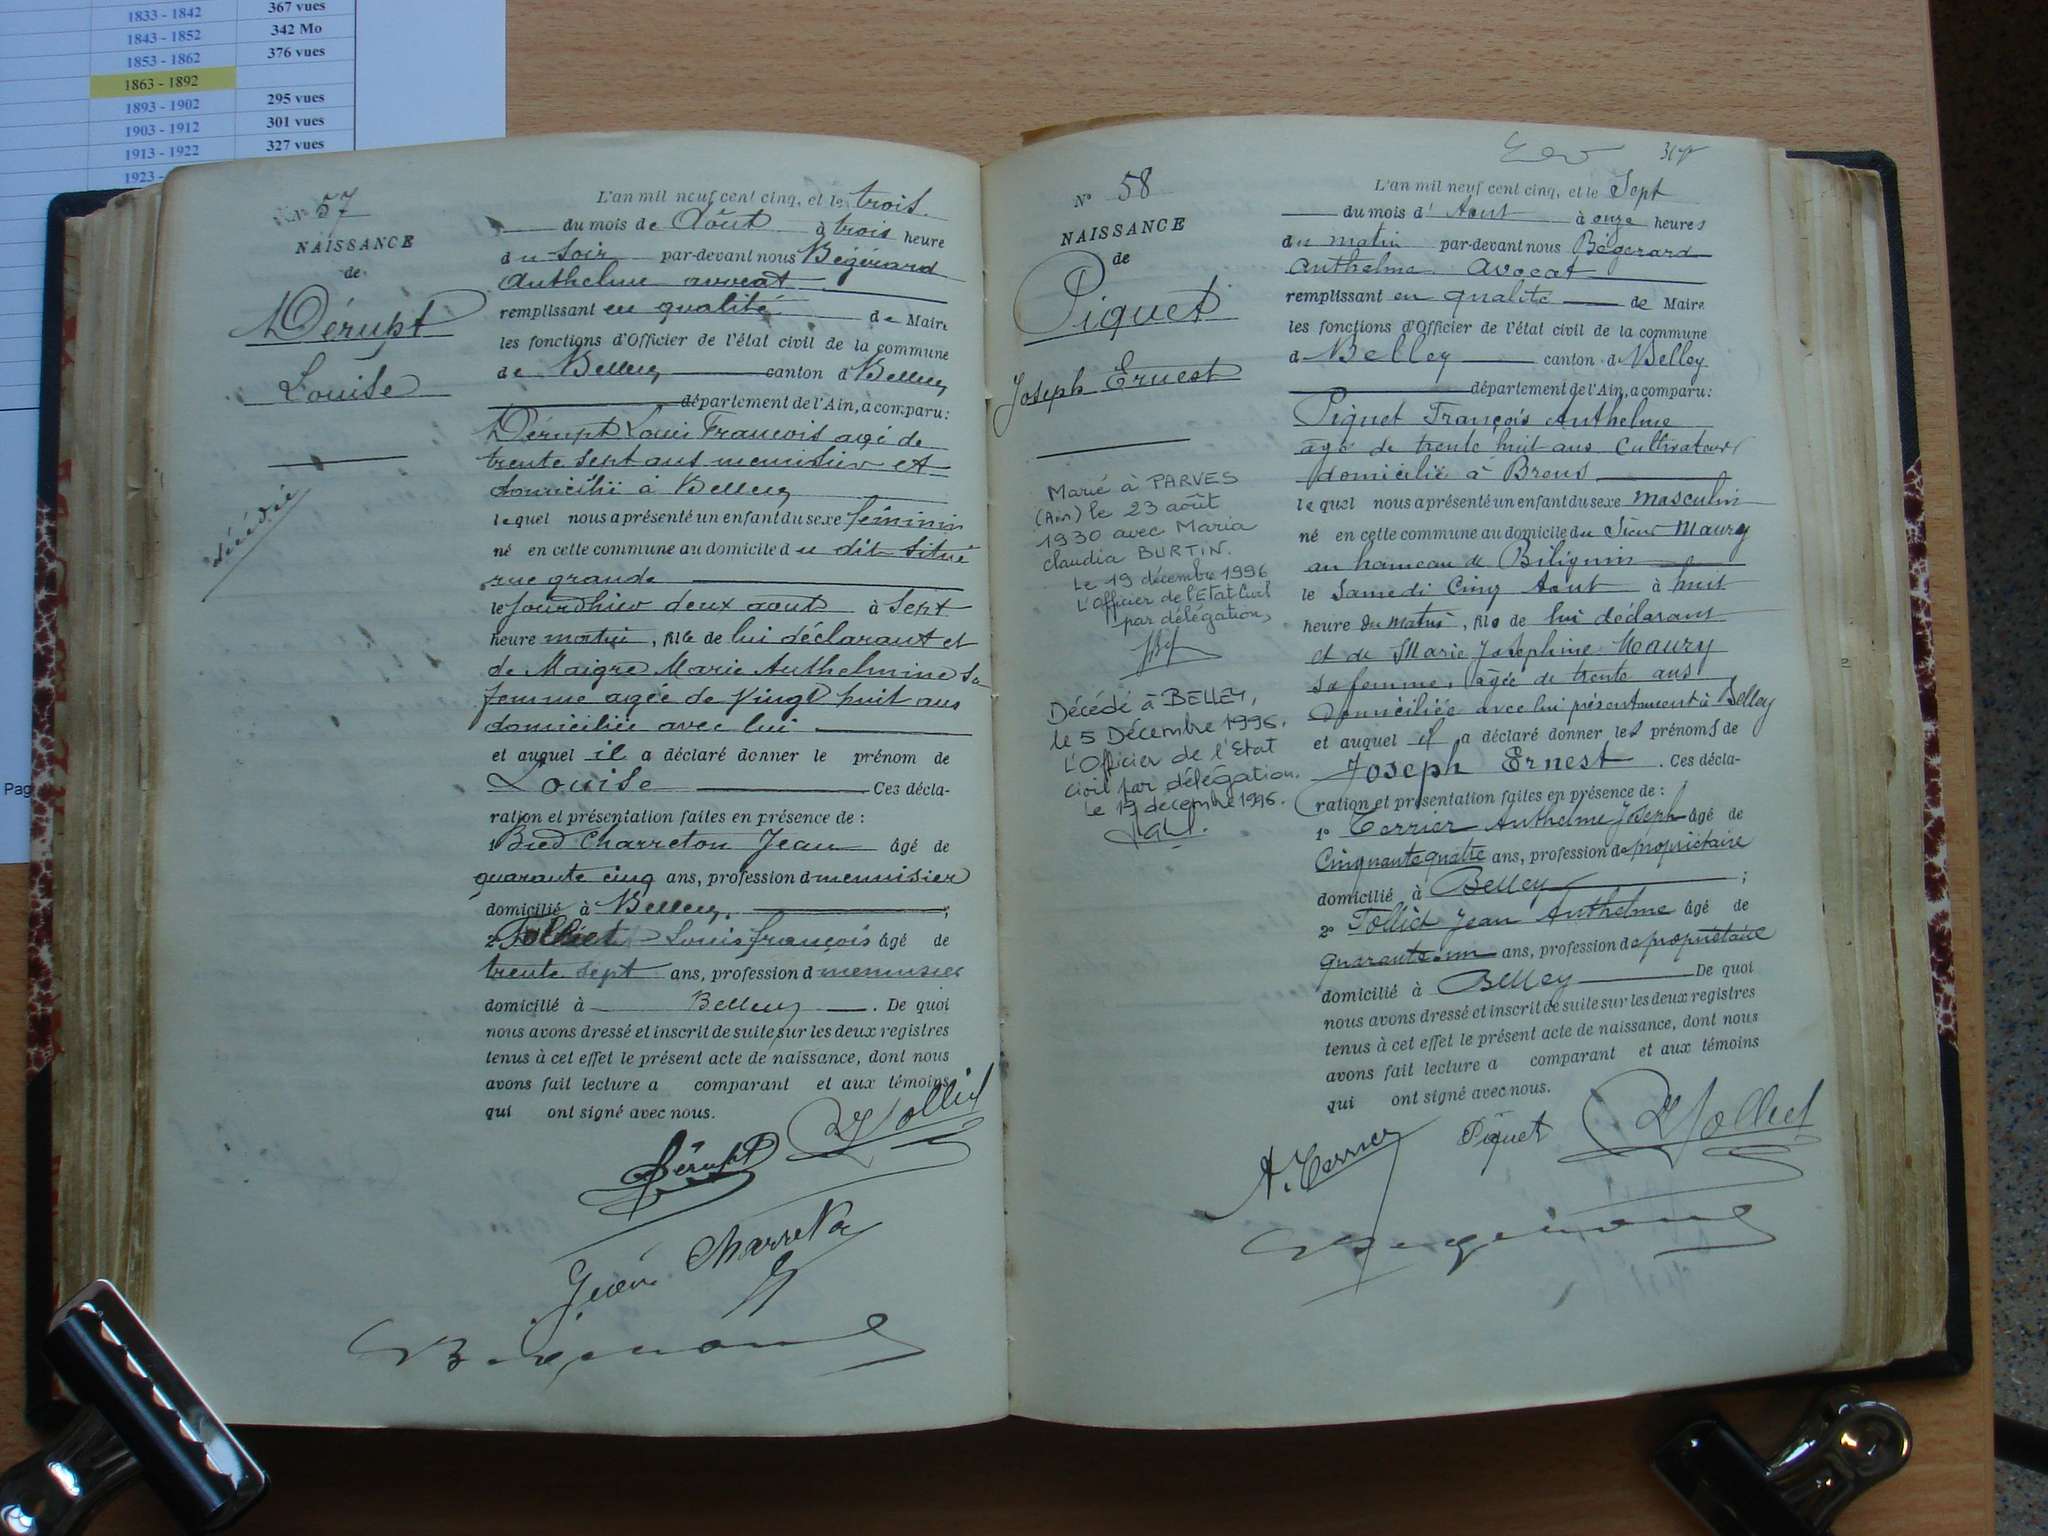 1833 - 1842 367 vues
1843 - 1852 342 Mo
1853 - 1862 376 vues
1863 - 1892
1893 - 1902 295 vues
1903 - 1912 301 vues
1913 - 1922 327 vues
1923 -
Pag
N° 57
NAISSANCE
de
Dérupt
Louise
décédée
L'an mil neuf cent cinq, et le trois
du mois de Août à trois heure
du soir par-devant nous Bégérard
Anthelme avocat
remplissant en qualité de Maire
les fonctions d'Officier de l'état civil de la commune
de Belley canton d Belley
département de l'Ain, a comparu :
Dérupt Louis François agé de
trente sept ans menuisier et
domicilié à Belley
lequel nous a présenté un enfant du sexe féminin
né en cette commune au domicile du dit situé
rue grande
le jourdhier deux aout à sept
heure matin, fille de lui déclarant et
de Maigre Marie Anthelmine sa
femme agée de vingt huit ans
domiciliée avec lui
et auquel il a déclaré donner le prénom de
Louise Ces décla-
ration et présentation faites en présence de :
1 Bied Charreton Jean âgé de
quarante cinq ans, profession d menuisier
domicilié à Belley ;
2 Tolliet Louis françois âgé de
trente sept ans, profession d menuisier
domicilié à Belley . De quoi
nous avons dressé et inscrit de suite sur les deux registres
tenus à cet effet le présent acte de naissance, dont nous
avons fait lecture a comparant et aux témoins
qui ont signé avec nous.
Tolliet
Dérupt
Jean Charreton
Bégerard
N° 58
NAISSANCE
de
Piquet
Joseph Ernest
Marié à PARVES
(Ain) le 23 août
1930 avec Maria
claudia BURTIN.
Le 19 décembre 1996
L'Officier de l'Etat Civil
par délégation,
Décédé à BELLEY,
le 5 Décembre 1996.
L'Officier de l'Etat
Civil par délégation.
Le 19 decembre 1996.
L'an mil neuf cent cinq, et le Sept
du mois d' Aout à onze heures
du matin par-devant nous Bégerard
Anthelme Avocat
remplissant en qualité de Maire
les fonctions d'Officier de l'état civil de la commune
d Belley canton d Belley
département de l'Ain, a comparu :
Piquet François Anthelme
agé de trente huit ans Cultivateur
domicilié à Brens
lequel nous a présenté un enfant du sexe masculin
né en cette commune au domicile du Sieur Maury
au hameau de Bilignin
le Samedi Cinq Aout à huit
heure du matin, fils de lui déclarant
et de Marie Joséphine Maury
sa femme, âgée de trente ans
Domiciliée avec lui présentement à Belley
et auquel il a déclaré donner les prénoms de
Joseph Ernest . Ces décla-
ration et présentation faites en présence de :
1° Terrier Anthelme Joseph âgé de
Cinquante quatre ans, profession de propriétaire
domicilié à Belley ;
2° Tolliet Jean Anthelme âgé de
quarante un ans, profession de propriétaire
domicilié à Belley De quoi
nous avons dressé et inscrit de suite sur les deux registres
tenus à cet effet le présent acte de naissance, dont nous
avons fait lecture a comparant et aux témoins
qui ont signé avec nous.
A. Terrier Piquet Tolliet
Bégerard